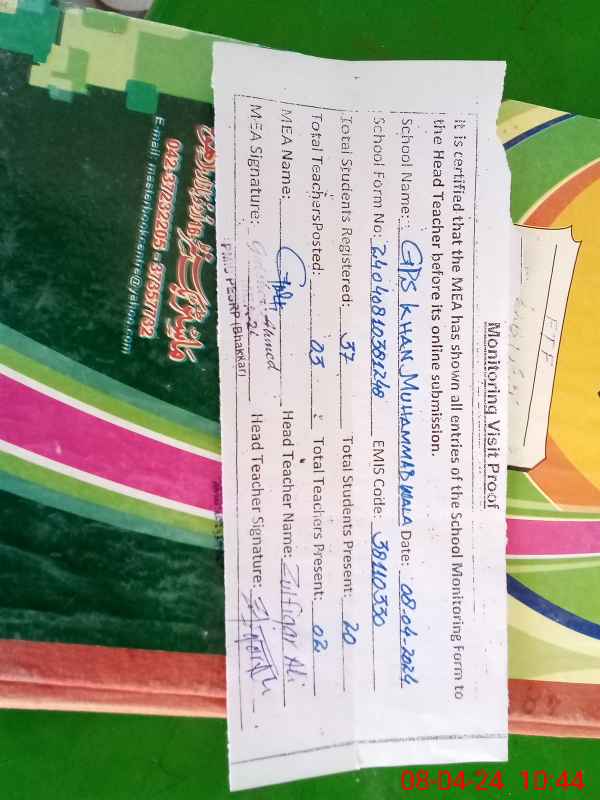 Monitoring Visit Proof
It is certified that the MEA has shown all entries of the School Monitoring Form to
the Head Teacher before its online submission.
School Name: GPS KHAN MUHAMMAD WALA Date: 08-04-2024
School Form No: EMIS Code: 38110330
Total Students Registered: 37 Total Students Present: 20
Total TeachersPosted: 03 Total Teachers Present: 02
MEA Name: Head Teacher Name: Zulfiqar Ali
MEA Signature: Ahmed Head Teacher Signature:
PMIU PESRP (Bhakkar)
ETF
042-37232205 - 37357032
E-mail: masterbookcentre@yahoo.com
08-04-24 10:44